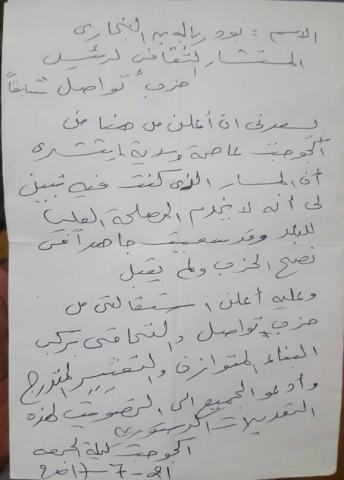 الاسم : بودرباله بن البخاري
المستشار الثقافي لرئيس
حزب تواصل سابقاً
يسعدني ان أعلن من هنا من
الحوحت عاصمة
أن المسار الذي كنت فيه تبين
لي أنه لا يخدم المصلحة العليا
للبلد وقد سعيت جاهدا في
نصح الحزب ولم يقبل
وعليه أعلن استقالتي من
حزب تواصل والتحاقي بركب
البناء المتوازن والتغيير المتدرج
وأدعو الجميع الى التصويت لهذه
التعديلات الدستورية
ليلة الجمعة
21-7-2017